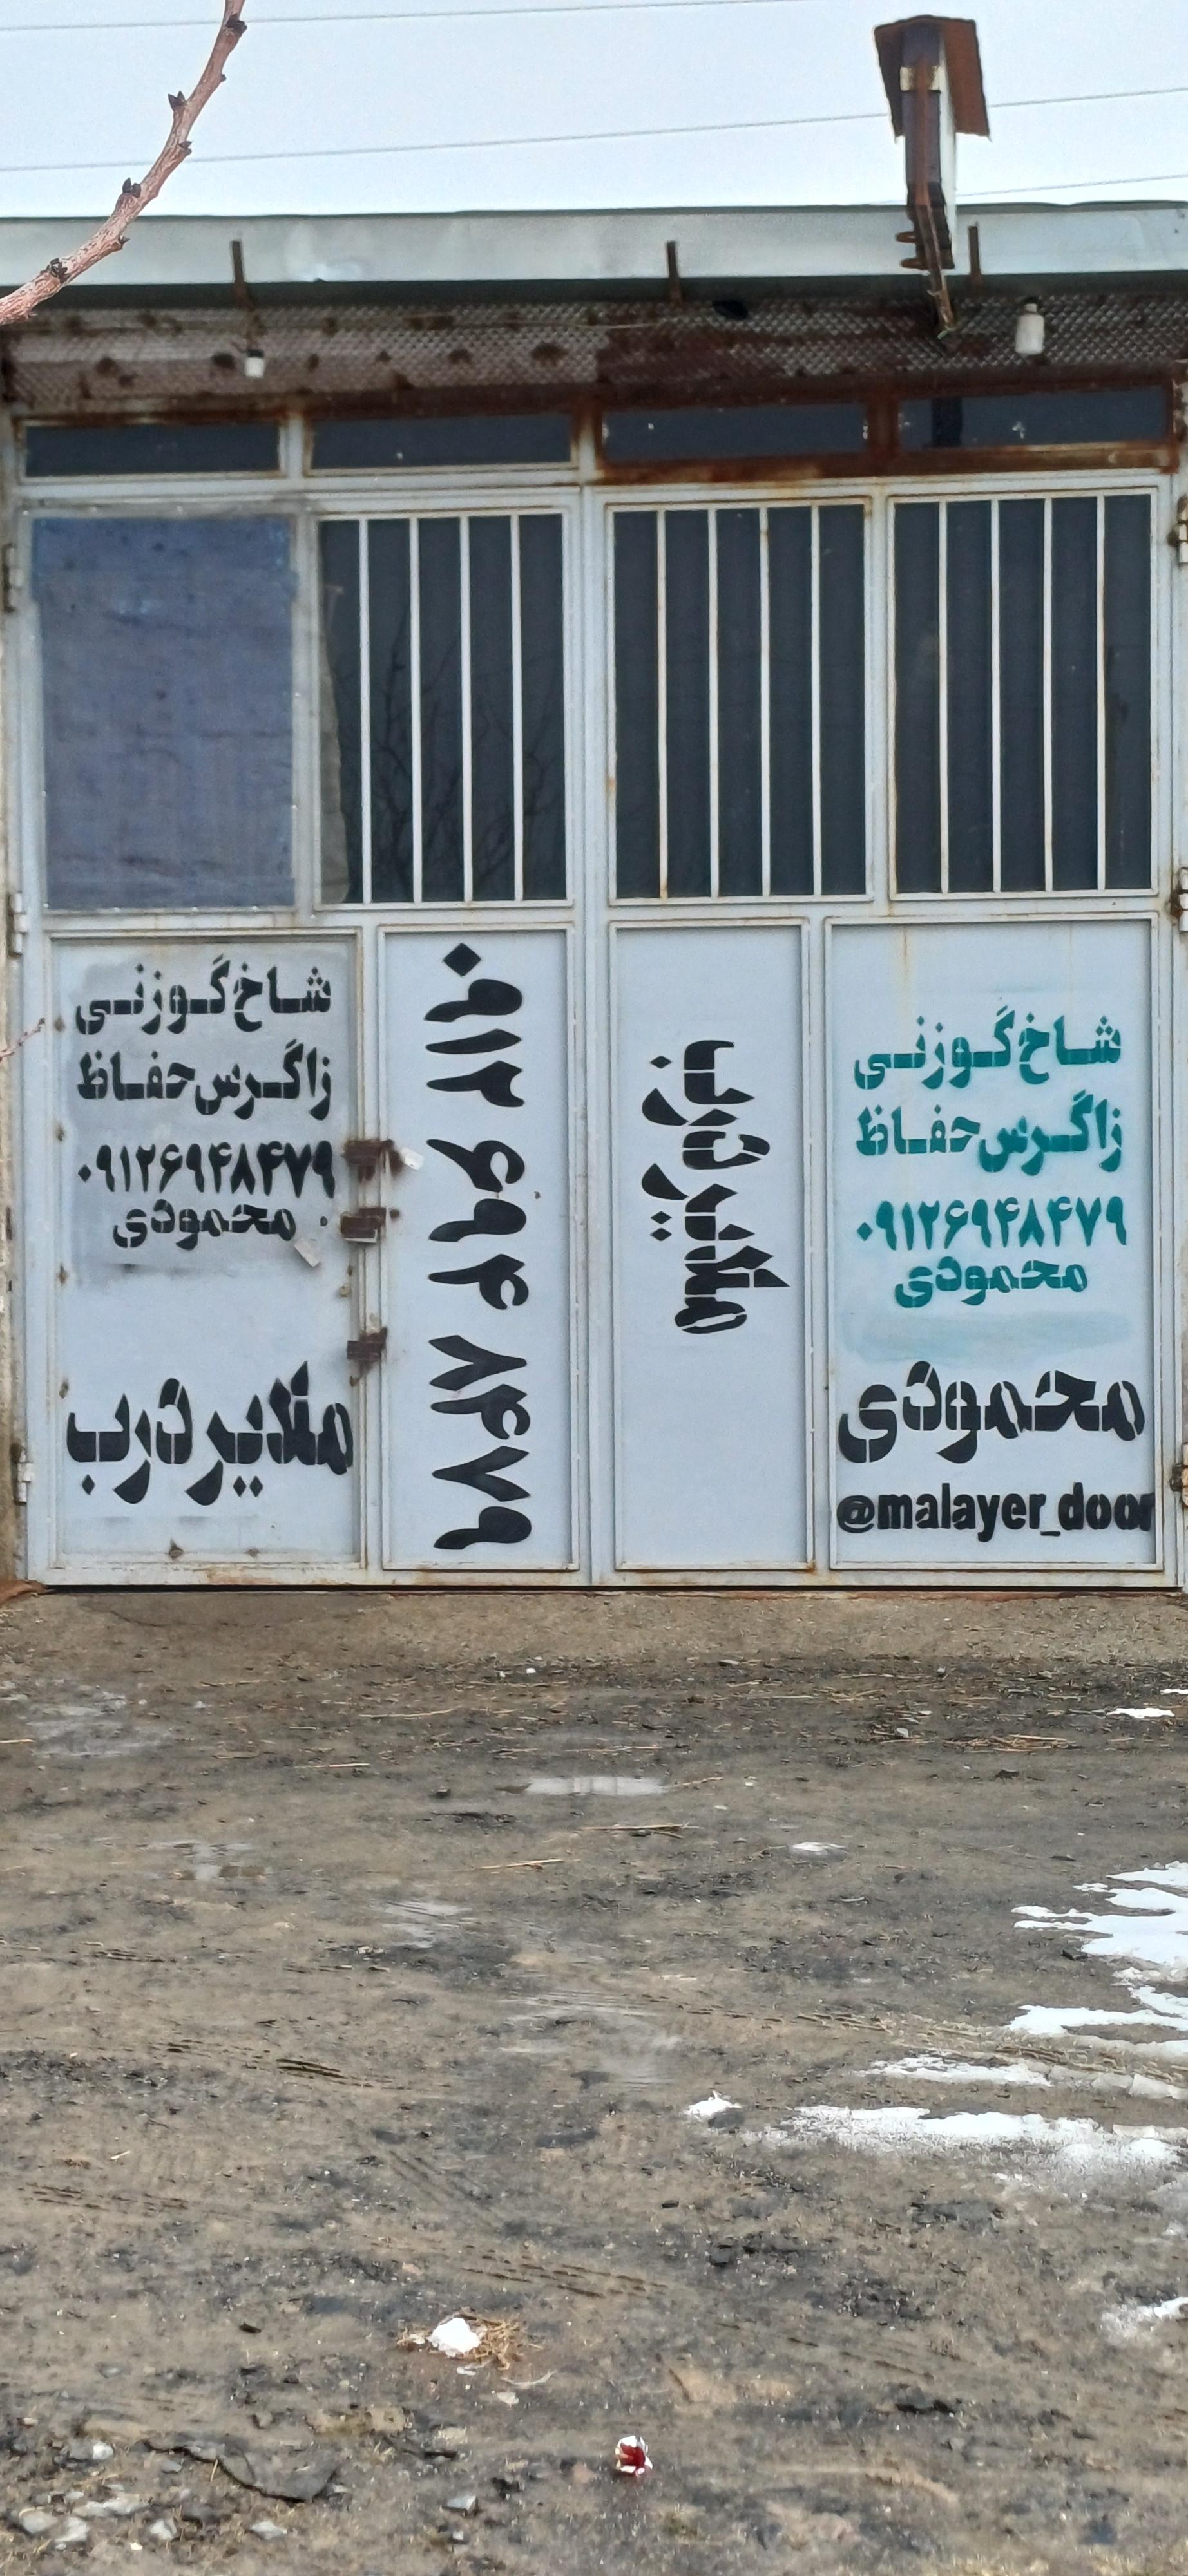 شاخ گوزنی
زاگرس حفاظ
۰۹۱۲۶۹۴۸۴۷۹
محمودی
محمودی
@malayer_door
ملایر درب
۰۹۱۲ ۶۹۴ ۸۴۷۹
شاخ گوزنی
زاگرس حفاظ
۰۹۱۲۶۹۴۸۴۷۹
محمودی
ملایر درب